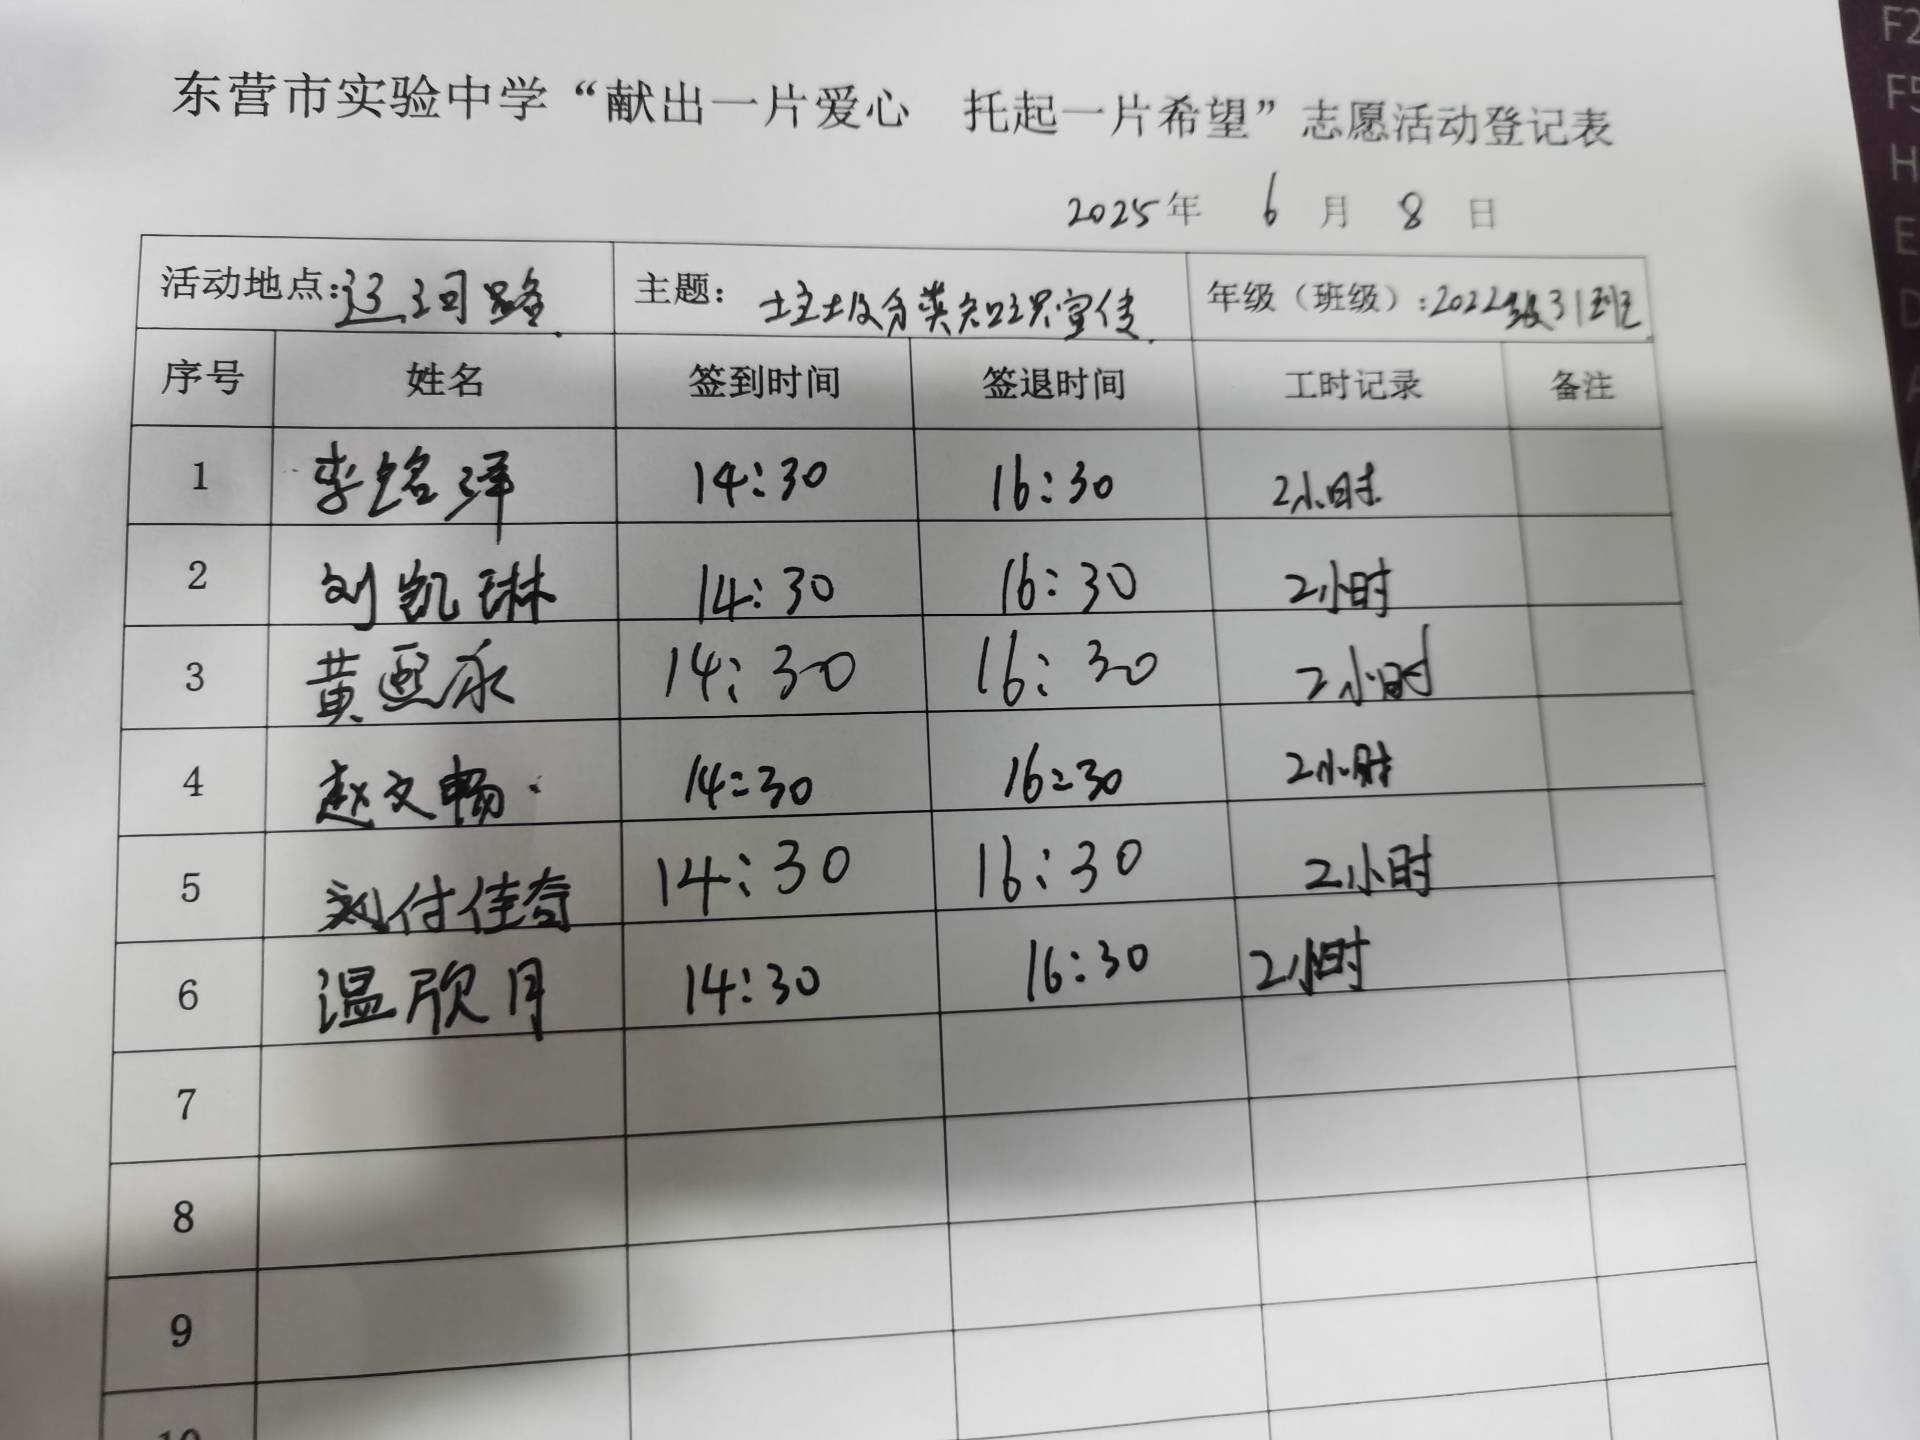 东营市实验中学“献出一片爱心 托起一片希望”志愿活动登记表
2025年 6 月 8 日
活动地点: 河路 主题: 垃圾分类知识宣传 年级（班级）: 2022级31班
序号 姓名 签到时间 签退时间 工时记录 备注
1 李铭泽 14:30 16:30 2小时
2 刘凯琳 14:30 16:30 2小时
3 黄熙永 14:30 16:30 2小时
4 赵文畅 14:30 16:30 2小时
5 刘付佳奇 14:30 16:30 2小时
6 温欣月 14:30 16:30 2小时
7
8
9
10
F2
F5
H
E
D
A